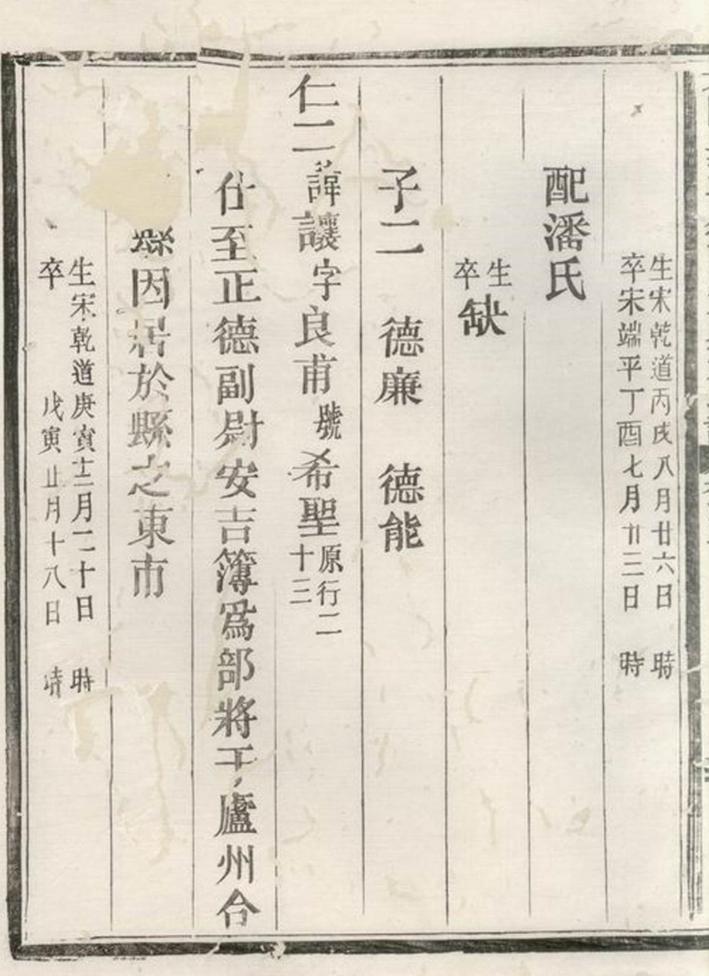 生宋乾道丙戌八月廿六日　時
卒宋端平丁酉七月廿三日　時
配潘氏
生
卒
缺
子二　德廉　德能
仁二諱讓字良甫號希聖原行二十三
仕至正德副尉安吉簿爲部將于廬州合
因居於縣之東市
生宋乾道庚寅十二月二十日　時
卒　戊寅正月十八日　時